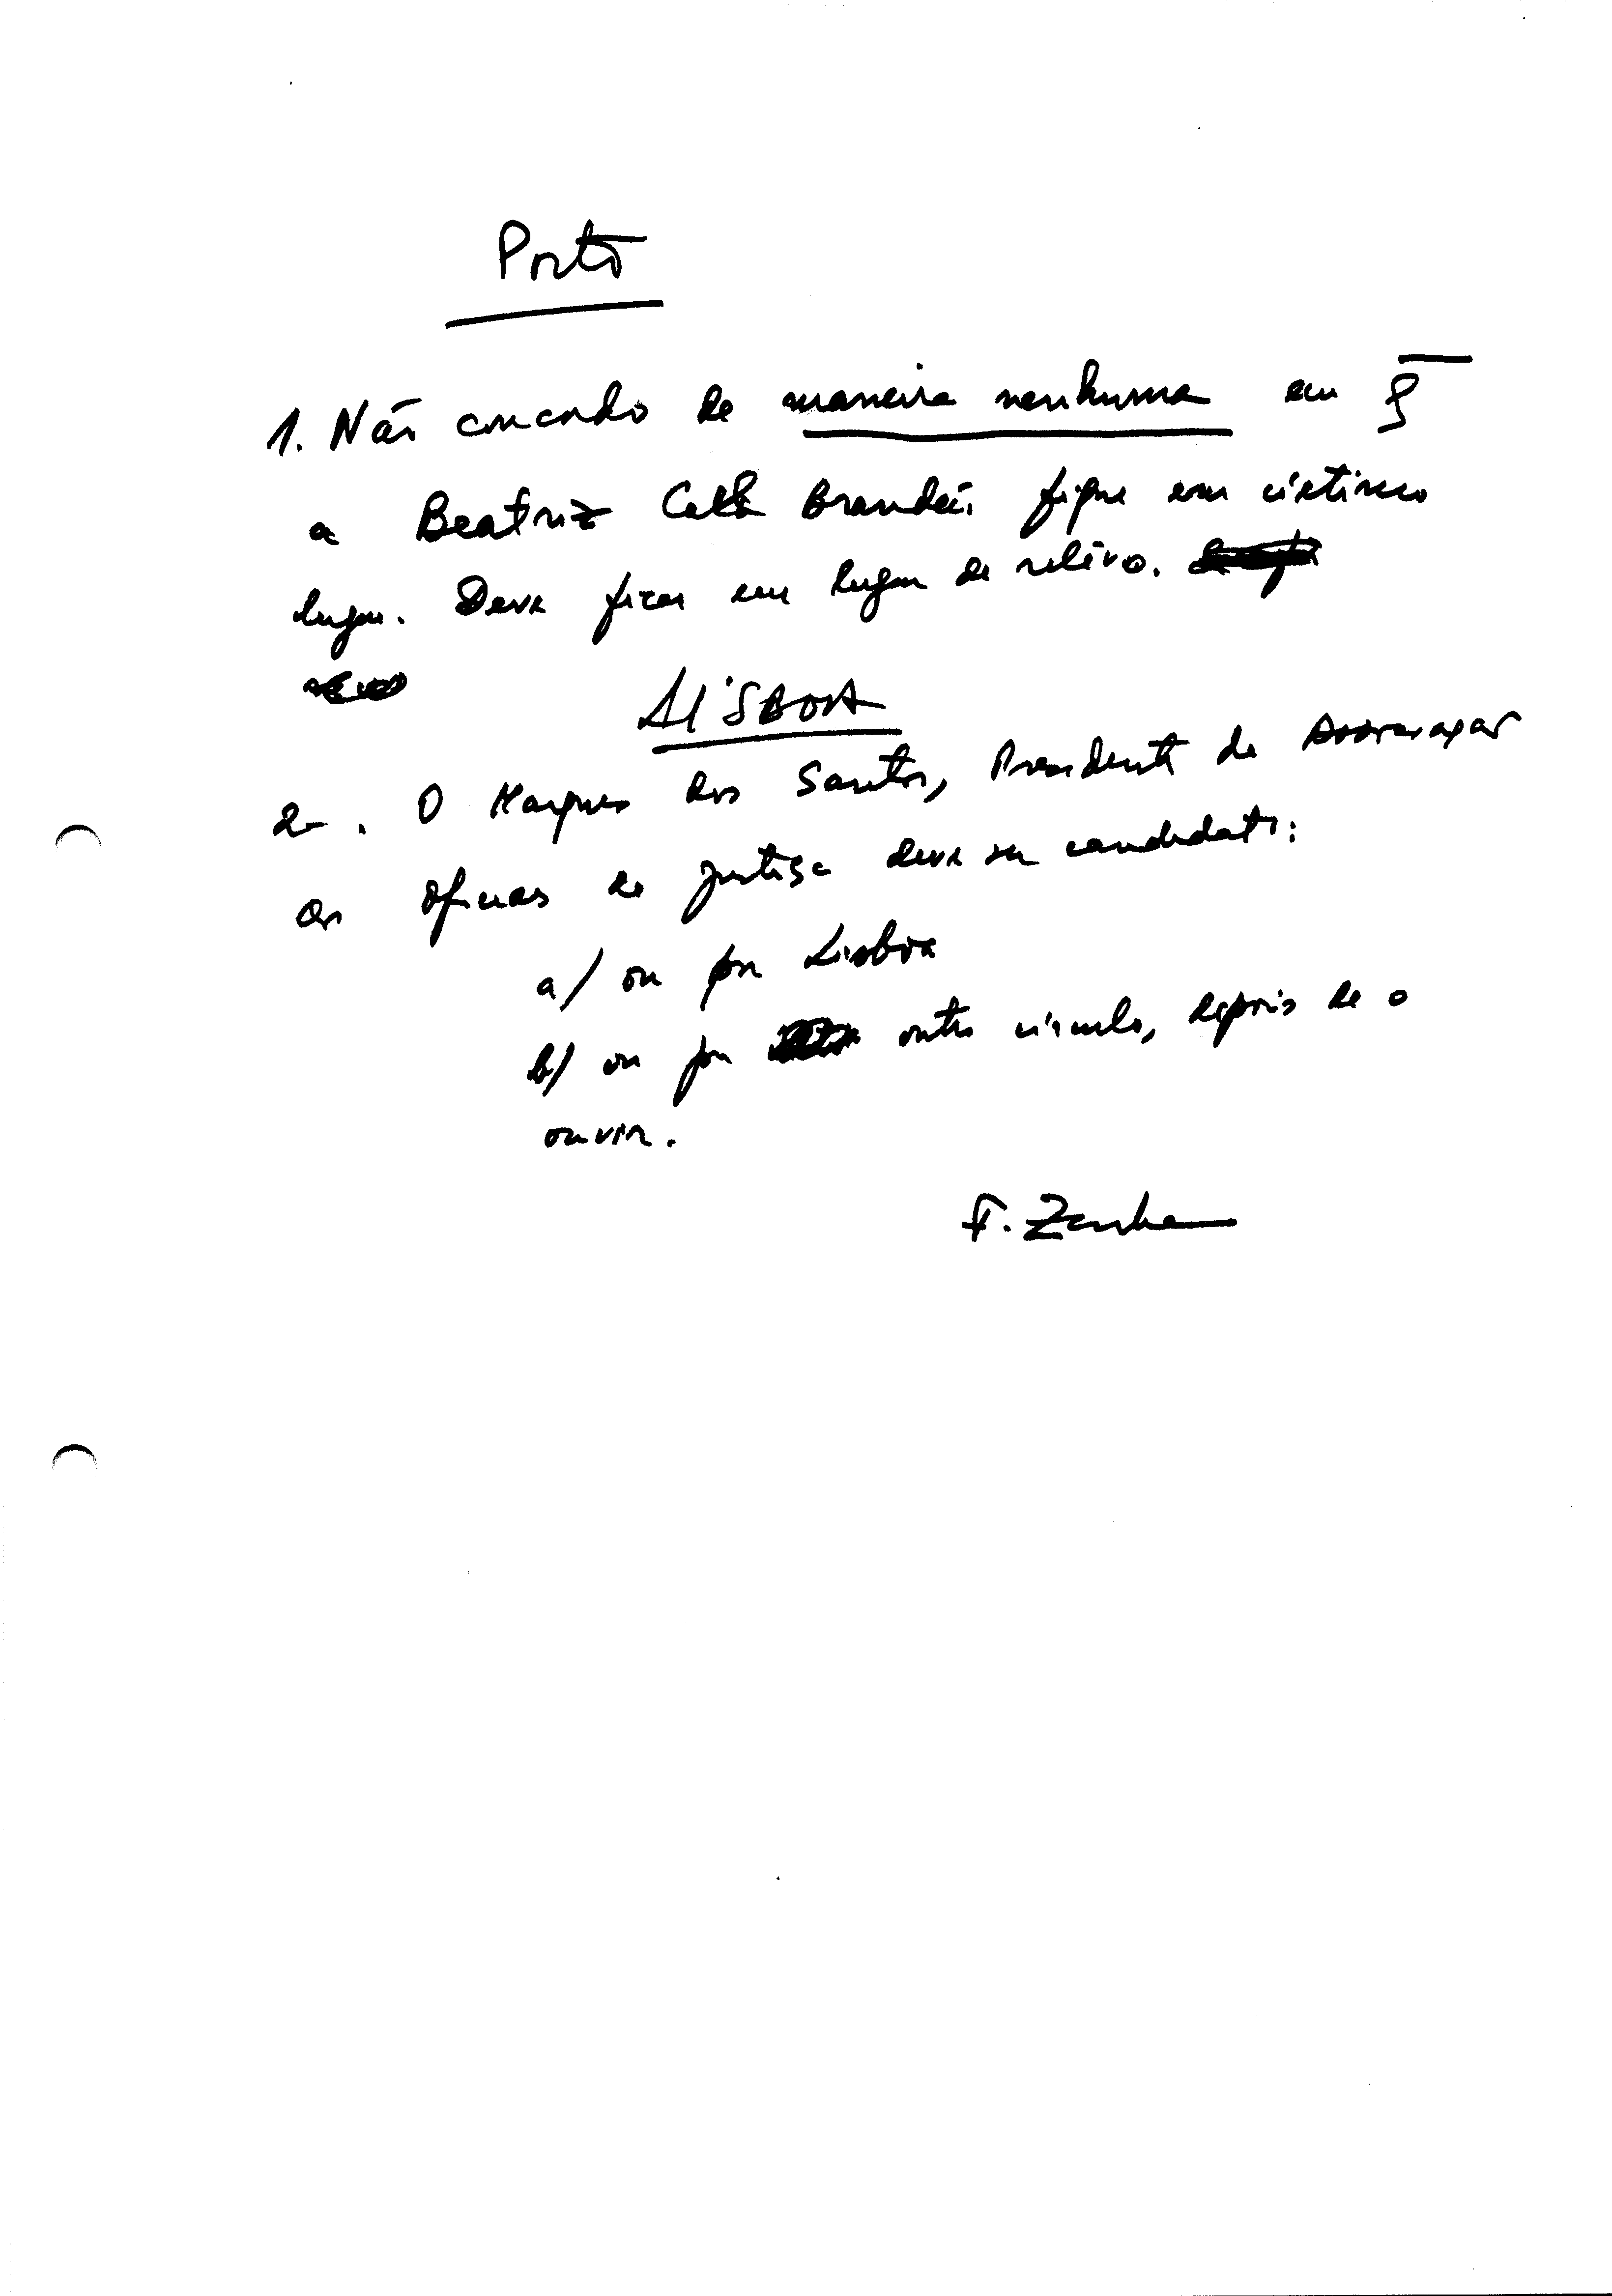 Porto
1. Não concordo de maneira nenhuma em q
a Beatriz Cal Brandão fique em
lugar. Deve ficar em lugar de relêvo.
LISBOA
2 . O Marques dos Santos, Presidente da Associação
dos oficiais de justiça deve ser candidato:
a/ ou por Lisboa
b/ ou por outro círculo, depois de o
ouvir.
F. Zenha